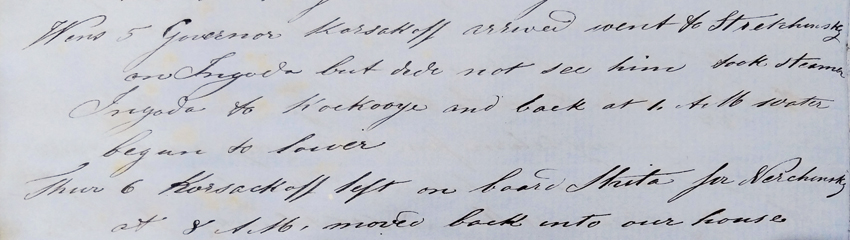 Wens 5 Governor Korsakoff arrived went to Stretchinsky
on Ingoda but dide not see him took steamer
Ingoda to Kockooye and back at 1. A.M water
begun to lower
Thur 6 Korsackoff left on board Shita for Nerchinsky
at 8 A.M. moved back into our house